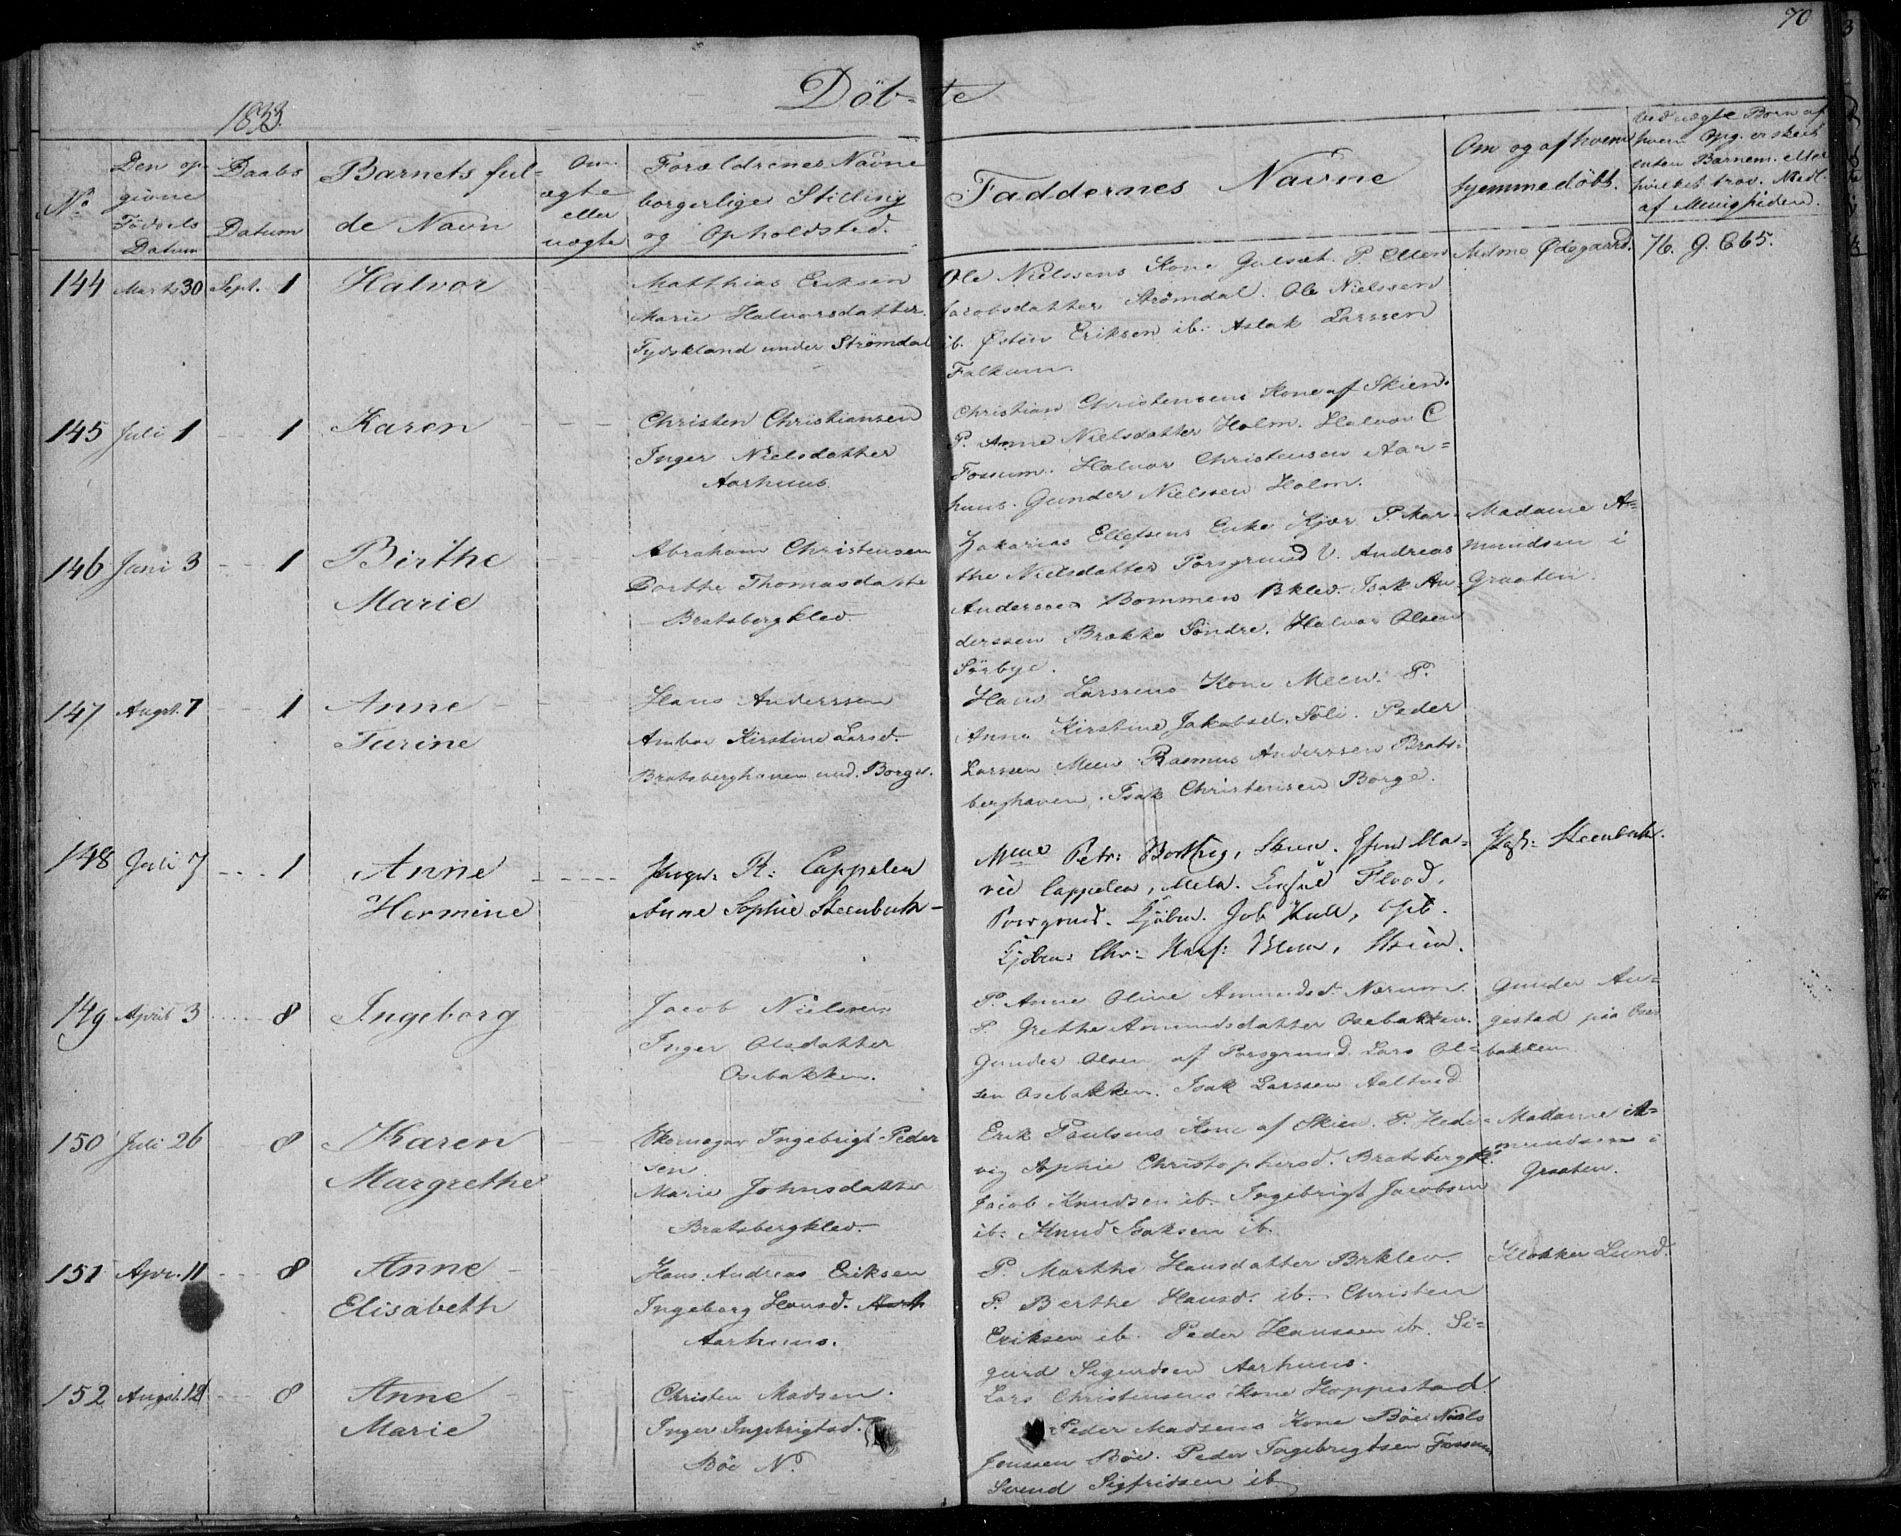 70
Döbte
1833.
No
Den opgivne Födsels Datum
Daabs Datum
Barnets fulde Navn
Om ægte eller uægte
Forældrenes Navne borgerlige Stilling og Opholdsted.
Faddernes Navne
Om og af hvem hjemmedöbt.
Ved uægte Börn af hvem Opg. er skeet enten Barnem. eller hvilket trov. Medl. af Menigheden.
144 Marts 30 Sept. 1 Halvor
Matthias Eriksen
Marie Halvorsdatter
Tydskland under Strömdal
Ole Nielssens Kone Gulset. P. Ellen
Jacobsdatter Strömdal. Ole Nielssen
ib. Östen Eriksen ib. Aslak Larssen
Falkum.
Ödegaard.
76. G. C 65.
145 Juli 1 1 Karen
Christen Christiansen
Inger Nielsdatter
Aarhuus
Christian Christensens Kone af Skien.
P. Anne Nielsdatter Holm. Halvor C
Fossum. Halvor Christensen Aar=
huus. Gunder Nielssen Holm.
146 Juni 3 1 Birthe
Marie
Abraham Christensen
Dorthe Thomasdatte
Bratsbergklev
Zakarias Ellefsens Enke Kjær P. Mar-
the Nielsdatter Porsgrund V. Andreas
Anderssen Bommen Bklev. Isak An-
derssen Brække Söndre. Halvor Olsen
Sörbye.
Madame A=
mundsen i
Graaten.
147 Augst. 7 1 Anne
Turine
Hans Anderssen
Ambor Kirstine Larsd.
Bratsberghaven und. Borge.
Hans Larssens Kone Meen. P.
Anne Kirstine Jakobsd. Söli. Peder
Larssen Meen Rasmus Anderssen Brats-
berghaven. Isak Christensen Borge.
148 Juli 7 1 Anne
Hermine
R: Cappelen
Anne Sophie Steenbuch
Mme Petr:
Cappelen, Flood,
Porsgrund. Kjöbm. Job
Kjöbm: Chr: Blom, Skien.
Steenbuch.
149 April 3 8 Ingeborg
Jacob Nielssen
Inger Olsdatter
Osebakken.
P. Anne Oline Amundsd. Nærum.
P. Grethe Amundsdatter Osebakken.
Gunder Olsen af Porsgrund. Lars Ol=
sen Osebakken. Isak Larssen Aaltved
Gunder An=
gestad paa Ose
bakken
150 Juli 26 8 Karen
Margrethe
Skomager Ingebrigt Peder
sen
Marie Johnsdatter
Bratsbergklev.
Erik Poulsens Kone af Skien. P. Hede-
vig Sophie Christophersd. Bratsbergkl.
Jacob Knudsen ib. Ingebrigt Jacobsen
ib. Knud Isaksen ib.
Madame A=
mundsen i
Graaten.
151 Apr. 11 8 Anne
Elisabeth
Hans Andreas Eriksen
Ingeborg Hansd.
Aarhuus.
P. Marthe Hansdatter Brklev.
P. Berthe Hansd. ib. Christen
Eriksen ib. Peder Hanssen ib. Si=
gurd Sigurdsen Aarhuus.
Klokker Lund.
152 Augst. 12 8 Anne
Marie
Christen Madsen.
Inger Ingebrigtsd.
Böe N.
Lars Christensens Kone Hoppestad.
Peder Madsens Kone Böe Niels
Jonssen Böe. Peder Ingebrigtsen Fossum
Svend Sigfridsen ib